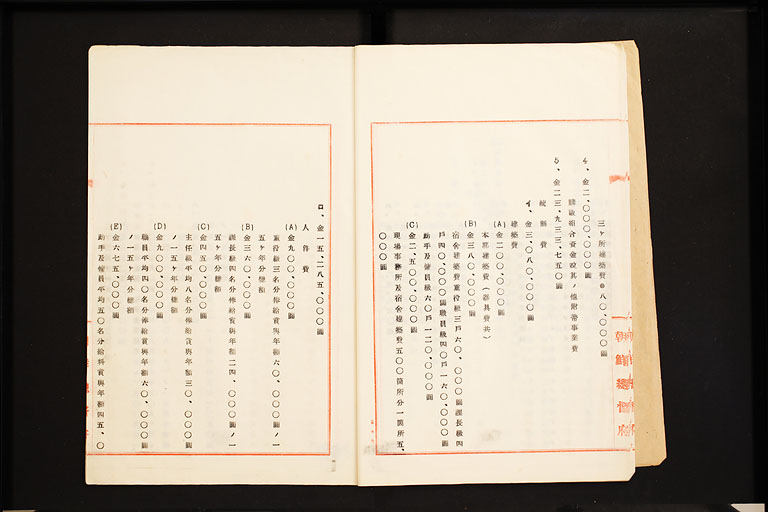 三ヶ所建築費@八〇、〇〇〇圓
4、金二、〇〇〇、〇〇〇圓
購販組合資金説其ノ他附帶事業費
5、金二三、九三三、七五〇圓
統基費
イ、金三、〇八〇、〇〇〇圓
建築費
(A)金二〇〇、〇〇〇圓
本廳建築費(器具費共)
(B)金三八〇、〇〇〇圓
宿舍建築費重役級三戸六〇、〇〇〇圓課長級四
戸四〇、〇〇〇圓職員級四〇戸一六〇、〇〇〇圓
助手及傭員級六〇戸一二〇、〇〇〇圓
(C)金二、五〇〇、〇〇〇圓
現場事務所及宿舍建築費五〇〇箇所分一箇所五、
〇〇〇圓
朝鮮總督府
ロ、金一五、二八五、〇〇〇圓
人件費
(A)金九〇〇、〇〇〇圓
重役級三名分俸給賞與年額六〇、〇〇〇圓ノ一
五ヶ年分總額
(B)金三六〇、〇〇〇圓
課長級四名分俸給賞與年額二四、〇〇〇圓ノ一
五ヶ年分總額
(C)金四五〇、〇〇〇圓
主任級平均八名分俸給賞與年額三〇、〇〇〇圓
ノ一五ヶ年分總額
(D)金九〇〇、〇〇〇圓
職員平均四〇名分俸給賞與年額六〇、〇〇〇圓
ノ一五ヶ年分總額
(E)金六七五、〇〇〇圓
助手及傭員平均五〇名分給料賞與年額四五、〇